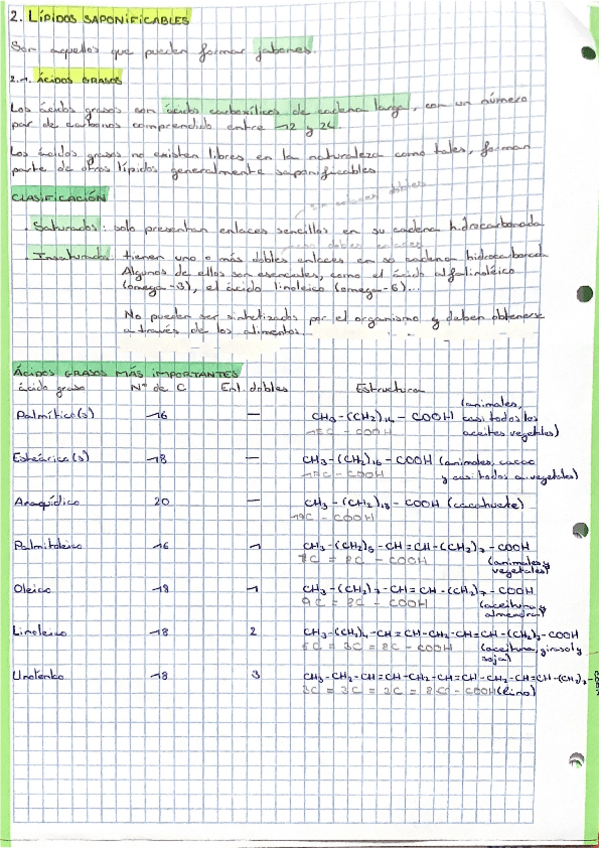 2. LÍPIDOS SAPONIFICABLES
Son aquellos que pueden formar jabones.
2.1. ÁCIDOS GRASOS
Los ácidos grasos son ácidos carboxílicos de cadena larga, con un número
par de carbonos comprendido entre 12 y 24.
Los ácidos grasos no existen libres en la naturaleza como tales, forman
parte de otros lípidos generalmente saponificables
CLASIFICACIÓN
sin enlaces dobles
· Saturados: solo presentan enlaces sencillos en su cadena hidrocarbonada
con dobles enlaces
· Insaturados: tienen uno o más dobles enlaces en su cadena hidrocarbonada
Algunos de ellos son esenciales, como el ácido alfalinoléico
(omega-3), el ácido linoleico (omega-6)...
No pueden ser sintetizados por el organismo y deben obtenerse
a través de los alimentos.
ÁCIDOS GRASOS MÁS IMPORTANTES
ácido graso Nº de C Enl. dobles Estructura
Palmítico(s) 16 — CH3-(CH2)14-COOH (animales, casi todos los aceites vegetales)
15C - COOH
Esteárico(s) 18 — CH3-(CH2)16-COOH (animales, cacao y casi todos a. vegetales)
17C - COOH
Araquídico 20 — CH3-(CH2)18-COOH (cacahuete)
19C - COOH
Palmitoleico 16 1 CH3-(CH2)5-CH=CH-(CH2)7-COOH
7C = 8C - COOH (animales y vegetales)
Oleico 18 1 CH3-(CH2)7-CH=CH-(CH2)7-COOH
9C = 8C - COOH (aceituna y almendra)
Linoleico 18 2 CH3-(CH2)4-CH=CH-CH2-CH=CH-(CH2)7-COOH
6C = 3C = 8C - COOH (aceituna, girasol y soja)
Linolénico 18 3 CH3-CH2-CH=CH-CH2-CH=CH-CH2-CH=CH-(CH2)7-COOH
3C = 3C = 2C = 8C - COOH (lino)